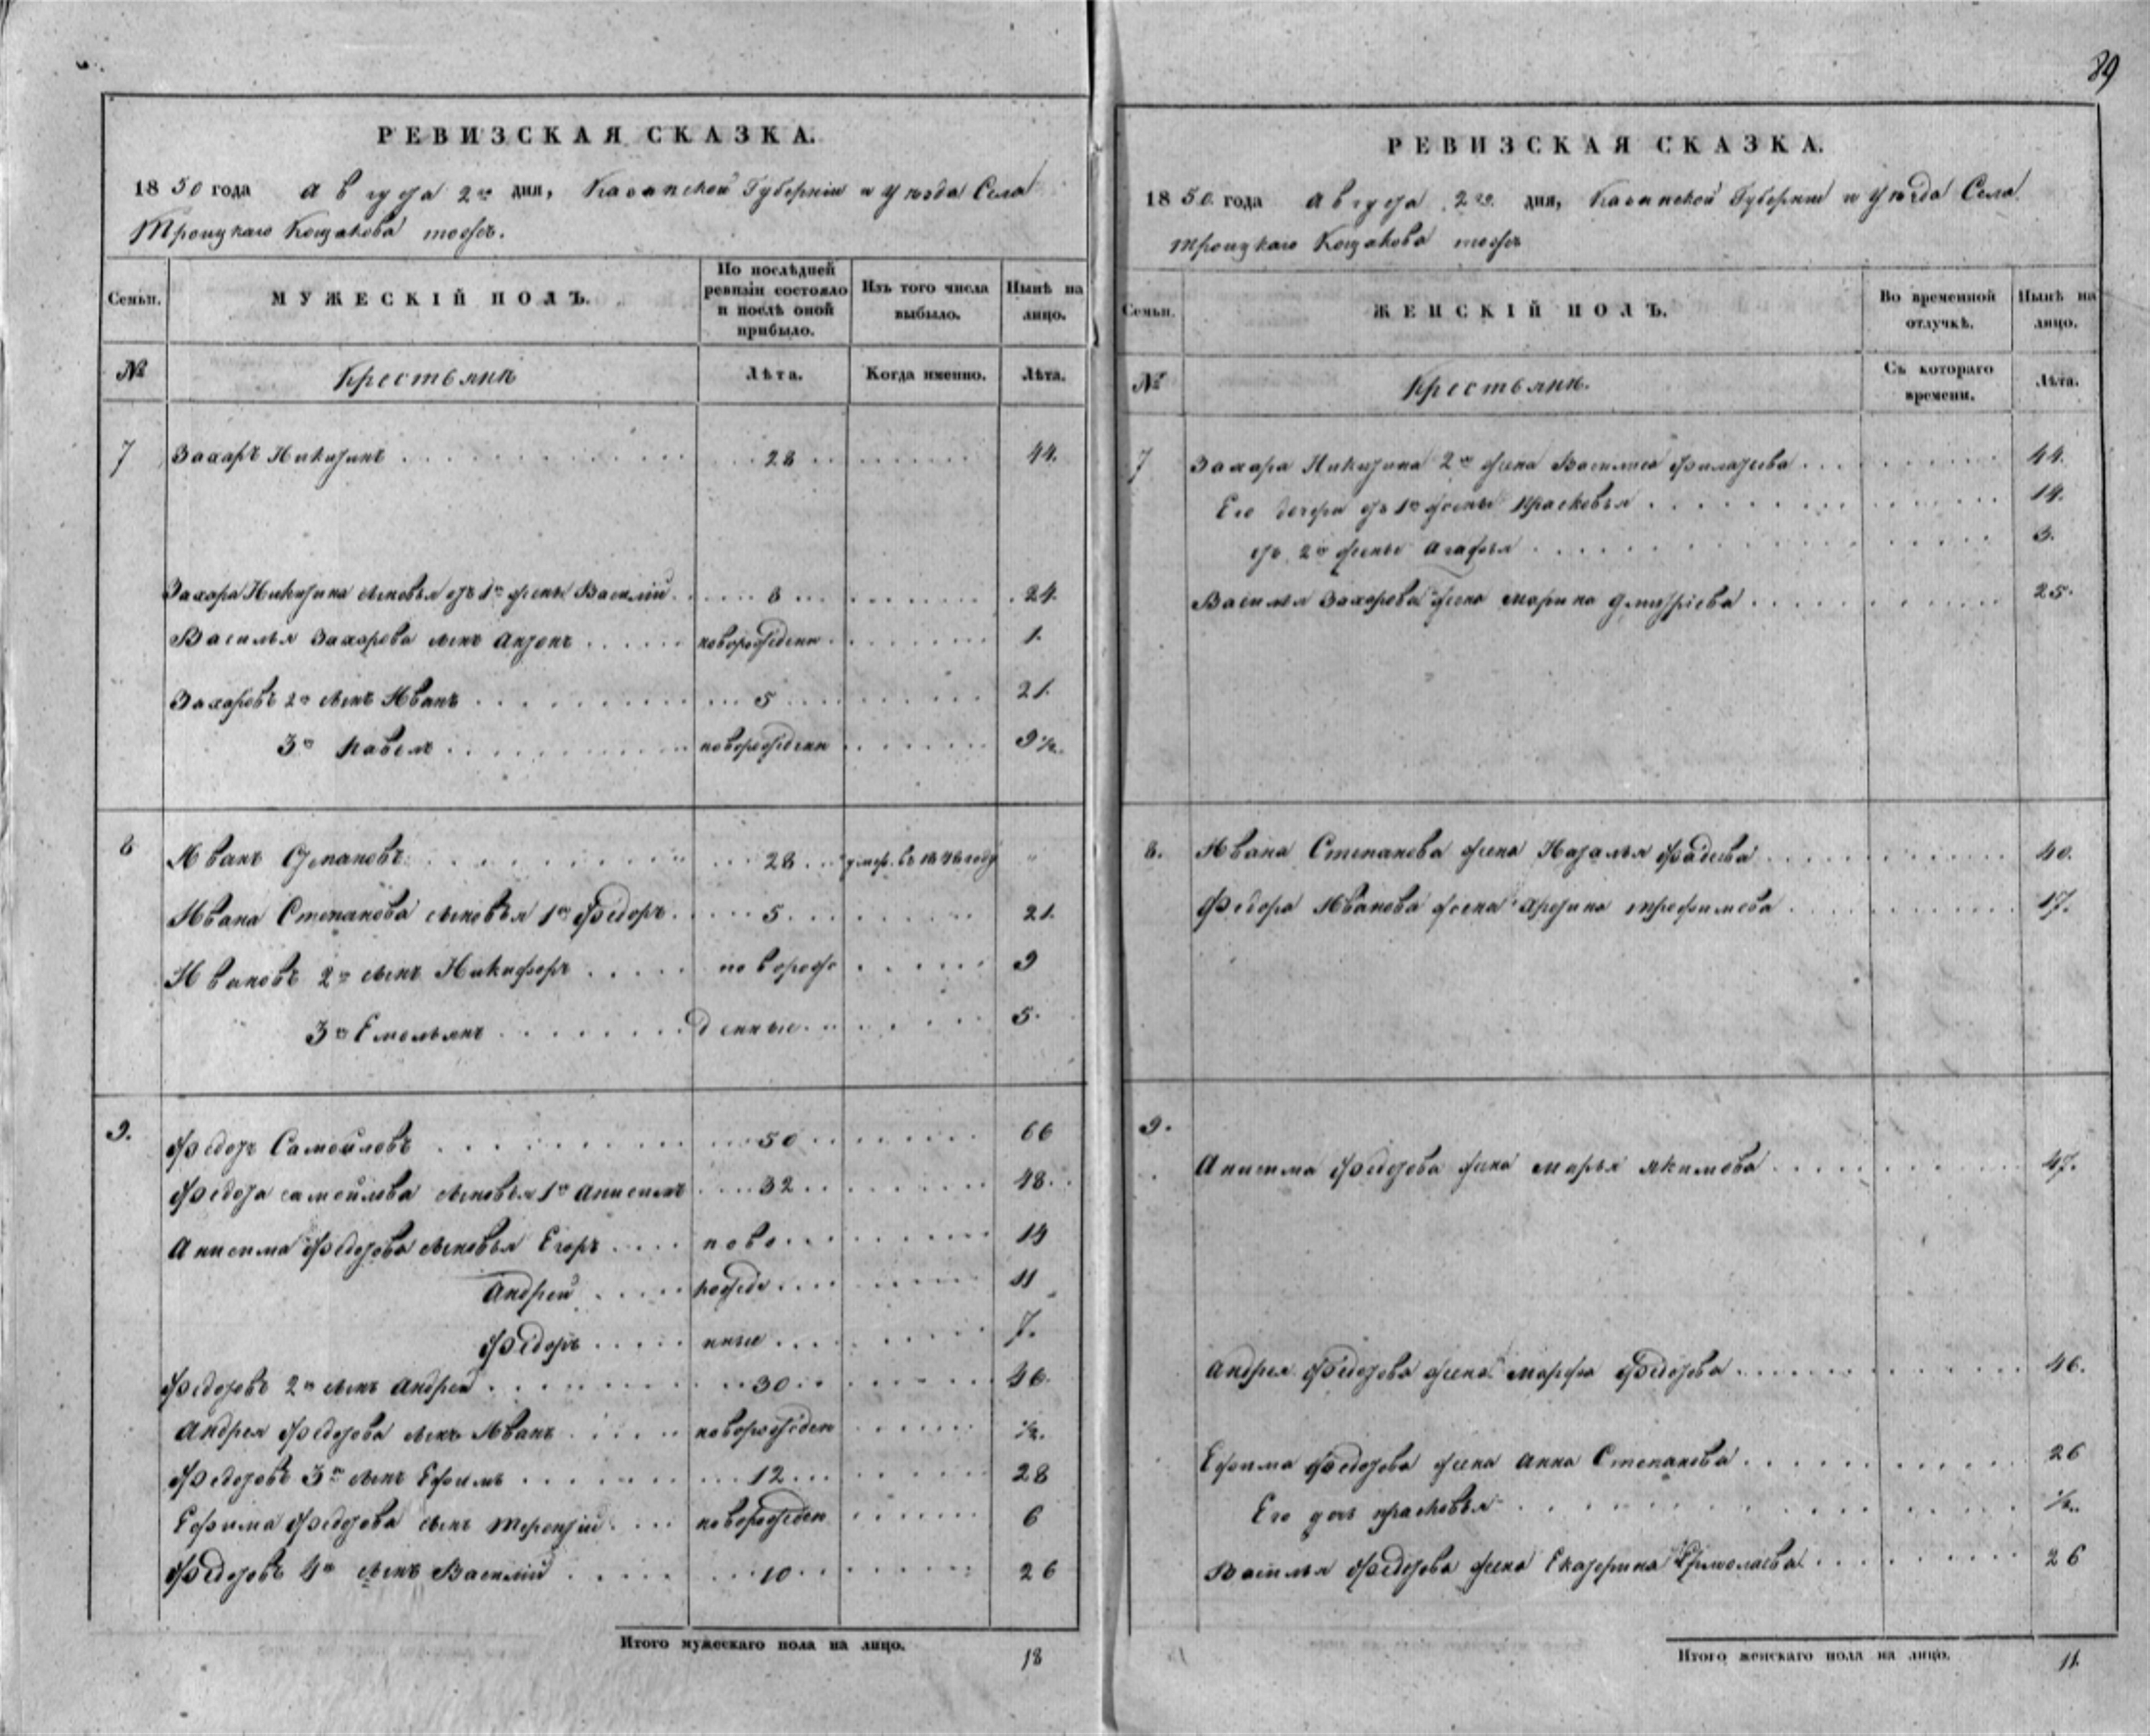 89
РЕВИЗСКАЯ СКАЗКА.
1850 года Августа 2го дня, Казанской Губерніи и уѣзда Села
Троицкаго Кощакова тожъ.
Семьи.
МУЖЕСКІЙ ПОЛЪ.
По послѣдней ревизіи состояло и послѣ оной прибыло.
Изъ того числа выбыло.
Нынѣ на лицо.
№ Крестьяне Лѣта. Когда именно. Лѣта.
7 Захаръ Никитинъ 28 44.
Захара Никитина сыновья отъ 1й жены Василій 8 24.
Василья Захарова сынъ Антонъ новорожденн 1.
Захаровъ 2й сынъ Иванъ 5 21.
3й Павелъ новорожденн 9 1/2
8 Иванъ Степановъ 28 умер. въ 1848 году "
Ивана Степанова сыновья 1й Федоръ 5 21.
Ивановъ 2й сынъ Никифоръоворож 9
3й Емельянъ денные 5.
9. Федоръ Самойловъ 50 66
Федора Самойлова сыновья 1й Анисимъ 32 48.
Анисима Федорова сыновья Егоръ ново 14
Андрей рожде 11
Федоръ нные 7.
Федоровъ 2й сынъ Андрей 30 46
Андрея Федорова сынъ Иванъ новорожден 1/2.
Федоровъ 3й сынъ Ефимъ 12 28
Ефима Федорова сынъ Терентій новорожден 6
Федоровъ 4й сынъ Василій 10 26
Итого мужескаго пола на лицо. 18
РЕВИЗСКАЯ СКАЗКА.
1850 года Августа 2го дня, Казанской Губерніи и уѣзда Села
Троицкаго Кощакова тожъ
Семьи.
ЖЕНСКІЙ ПОЛЪ.
Во временной отлучкѣ.
Нынѣ на лицо.
№ Крестьяне. Съ котораго времени. Лѣта.
7 Захара Никитина 2я жена Василиса Филатьева 44.
Его дочери отъ 1й жены Прасковья 14.
отъ 2й жены Агафья 3.
Василья Захарова жена Марина Дмитріева 25.
8. Ивана Степанова жена Наталья Фадеева 40.
Федора Иванова жена Арстина Трофимова 17.
9.
Анисима Федорова жена Марья Якимова 47.
Андрея Федорова жена Марфа Федорова 46.
Ефима Федорова жена Анна Степанова 26
Его дочь Прасковья 1/2.
Василья Федорова жена Екатерина Ермолаева 26
Итого женскаго пола на лицо. 11